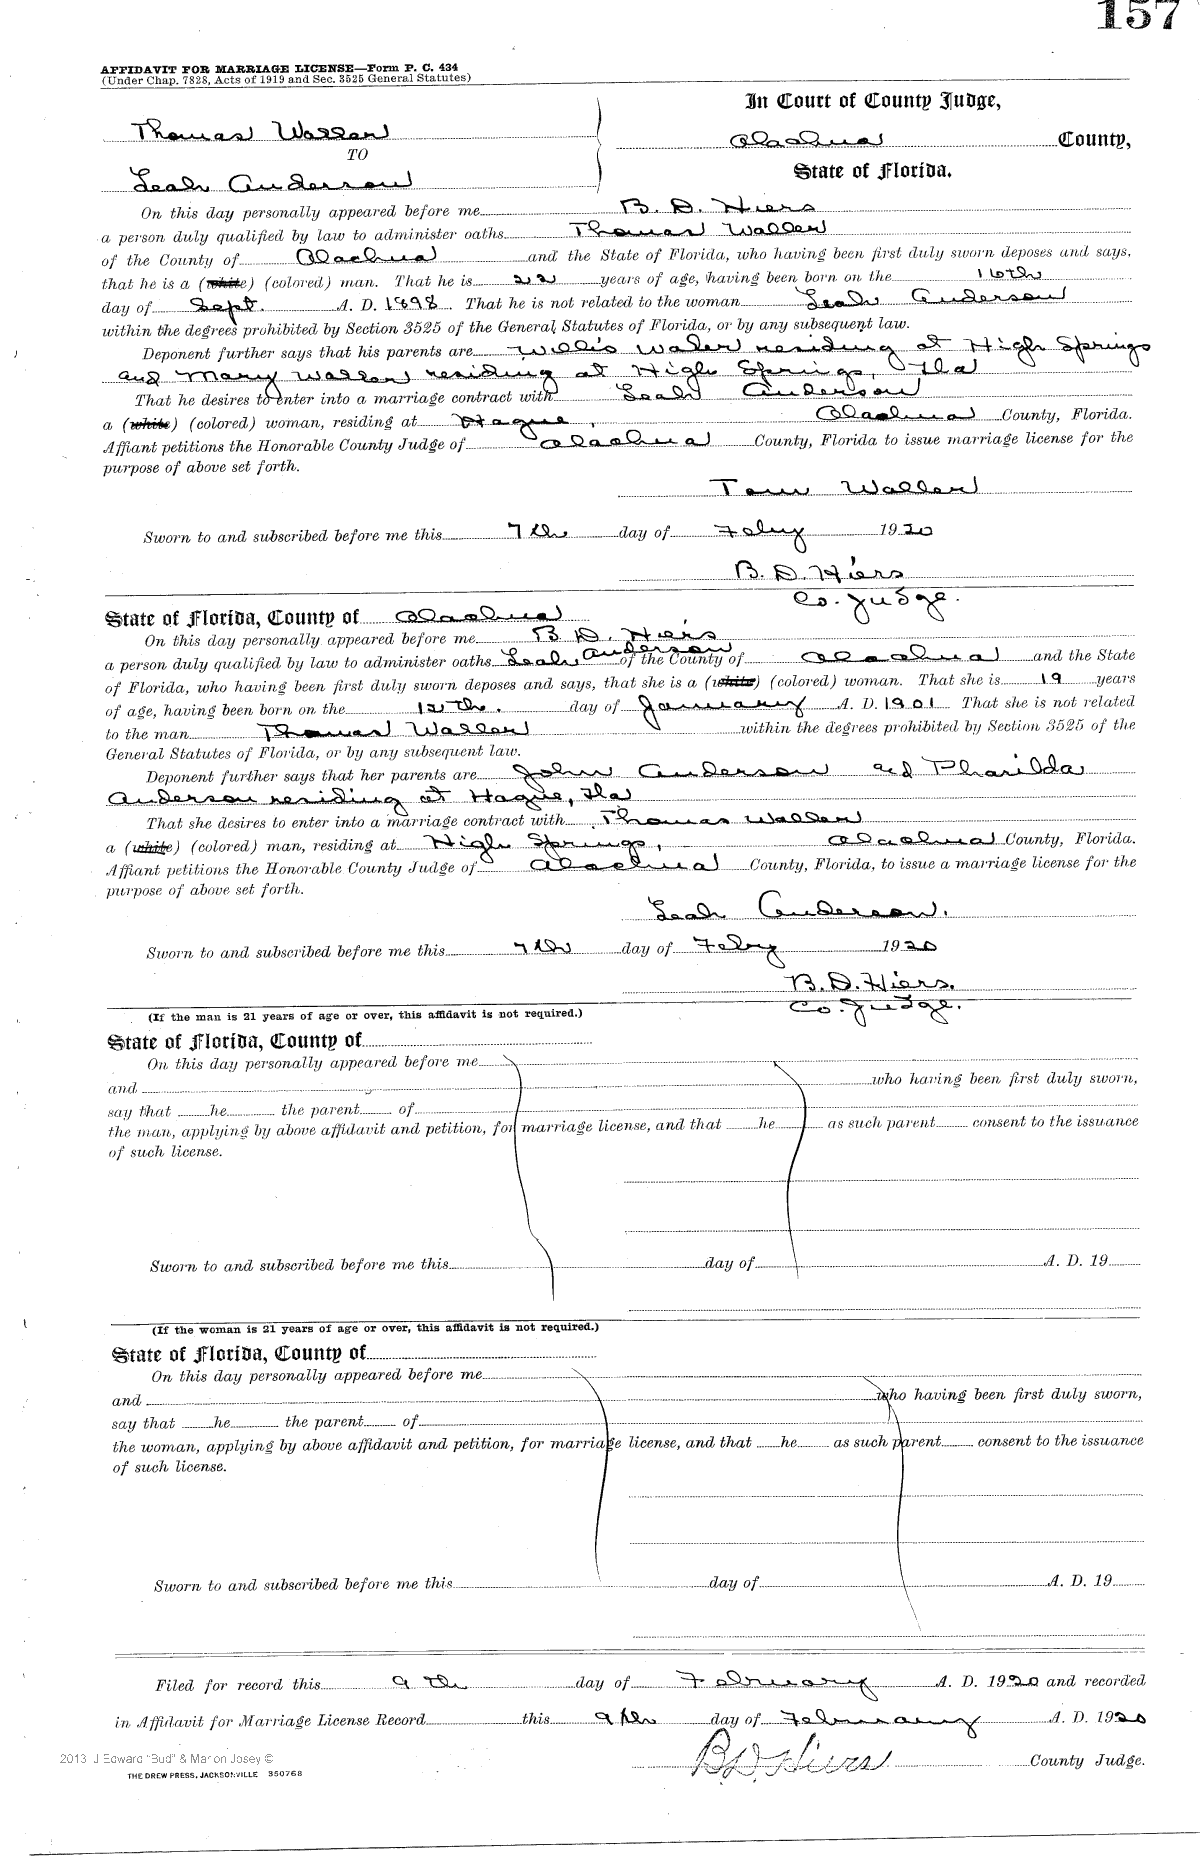 157
AFFIDAVIT FOR MARRIAGE LICENSE—Form P. C. 434
(Under Chap. 7828, Acts of 1919 and Sec. 3525 General Statutes)
In Court of County Judge,
Thomas Waller
Alachua County,
TO
State of Florida.
Leah Anderson
On this day personally appeared before me B. D. Hiers
a person duly qualified by law to administer oaths Thomas Waller
of the County of Alachua and the State of Florida, who having been first duly sworn deposes and says,
that he is a (white) (colored) man. That he is 22 years of age, having been born on the 16th
day of Sept. A. D. 1898 That he is not related to the woman Leah Anderson
within the degrees prohibited by Section 3525 of the General Statutes of Florida, or by any subsequent law.
Deponent further says that his parents are Willis Waler residing at High Springs
and Mary Waller residing at High Springs, Fla
That he desires to enter into a marriage contract with Leah Anderson
a (white) (colored) woman, residing at Hague, Alachua County, Florida.
Affiant petitions the Honorable County Judge of Alachua County, Florida to issue marriage license for the
purpose of above set forth.
Tom Waller
Sworn to and subscribed before me this 7th day of Feby 1920
B. D. Hiers
Co. Judge.
State of Florida, County of Alachua
On this day personally appeared before me B. D. Hiers
a person duly qualified by law to administer oaths Leah Anderson of the County of Alachua and the State
of Florida, who having been first duly sworn deposes and says, that she is a (white) (colored) woman. That she is 19 years
of age, having been born on the 12th. day of January A. D. 1901 That she is not related
to the man Thomas Waller within the degrees prohibited by Section 3525 of the
General Statutes of Florida, or by any subsequent law.
Deponent further says that her parents are John Anderson and Pharilda
Anderson residing at Hague, Fla
That she desires to enter into a marriage contract with Thomas Waller
a (white) (colored) man, residing at High Springs, Alachua County, Florida.
Affiant petitions the Honorable County Judge of Alachua County, Florida, to issue a marriage license for the
purpose of above set forth.
Leah Anderson.
Sworn to and subscribed before me this 7th day of Feby 1920
B. D. Hiers.
Co. Judge.
(If the man is 21 years of age or over, this affidavit is not required.)
State of Florida, County of
On this day personally appeared before me
and who having been first duly sworn,
say that he the parent of
the man, applying by above affidavit and petition, for marriage license, and that he as such parent consent to the issuance
of such license.
Sworn to and subscribed before me this day of A. D. 19
(If the woman is 21 years of age or over, this affidavit is not required.)
State of Florida, County of
On this day personally appeared before me
and who having been first duly sworn,
say that he the parent of
the woman, applying by above affidavit and petition, for marriage license, and that he as such parent consent to the issuance
of such license.
Sworn to and subscribed before me this day of A. D. 19
Filed for record this 9th day of February A. D. 1920 and recorded
in Affidavit for Marriage License Record this 9th day of February A. D. 1920
B. D. Hiers County Judge.
2013 J Edward "Bud" & Marion Josey ©
THE DREW PRESS, JACKSONVILLE 350768